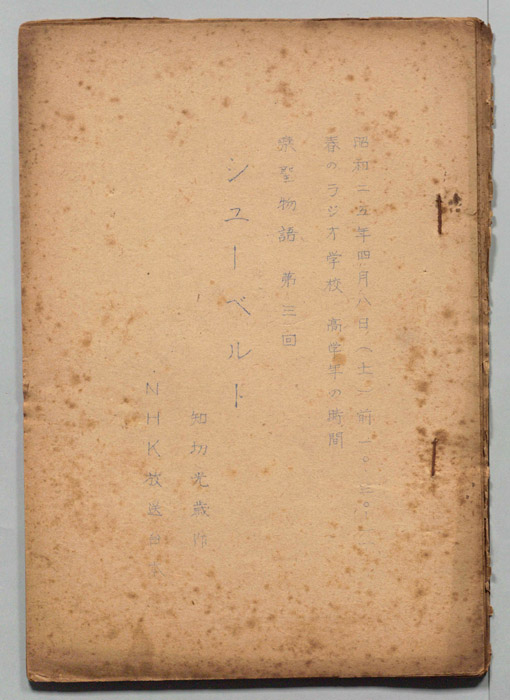 昭和二五年四月八日(土)前一〇.三〇
春のラジオ学校 高学年の時間
楽聖物語 第三回
シューベルト
知切光歳作
NHK放送